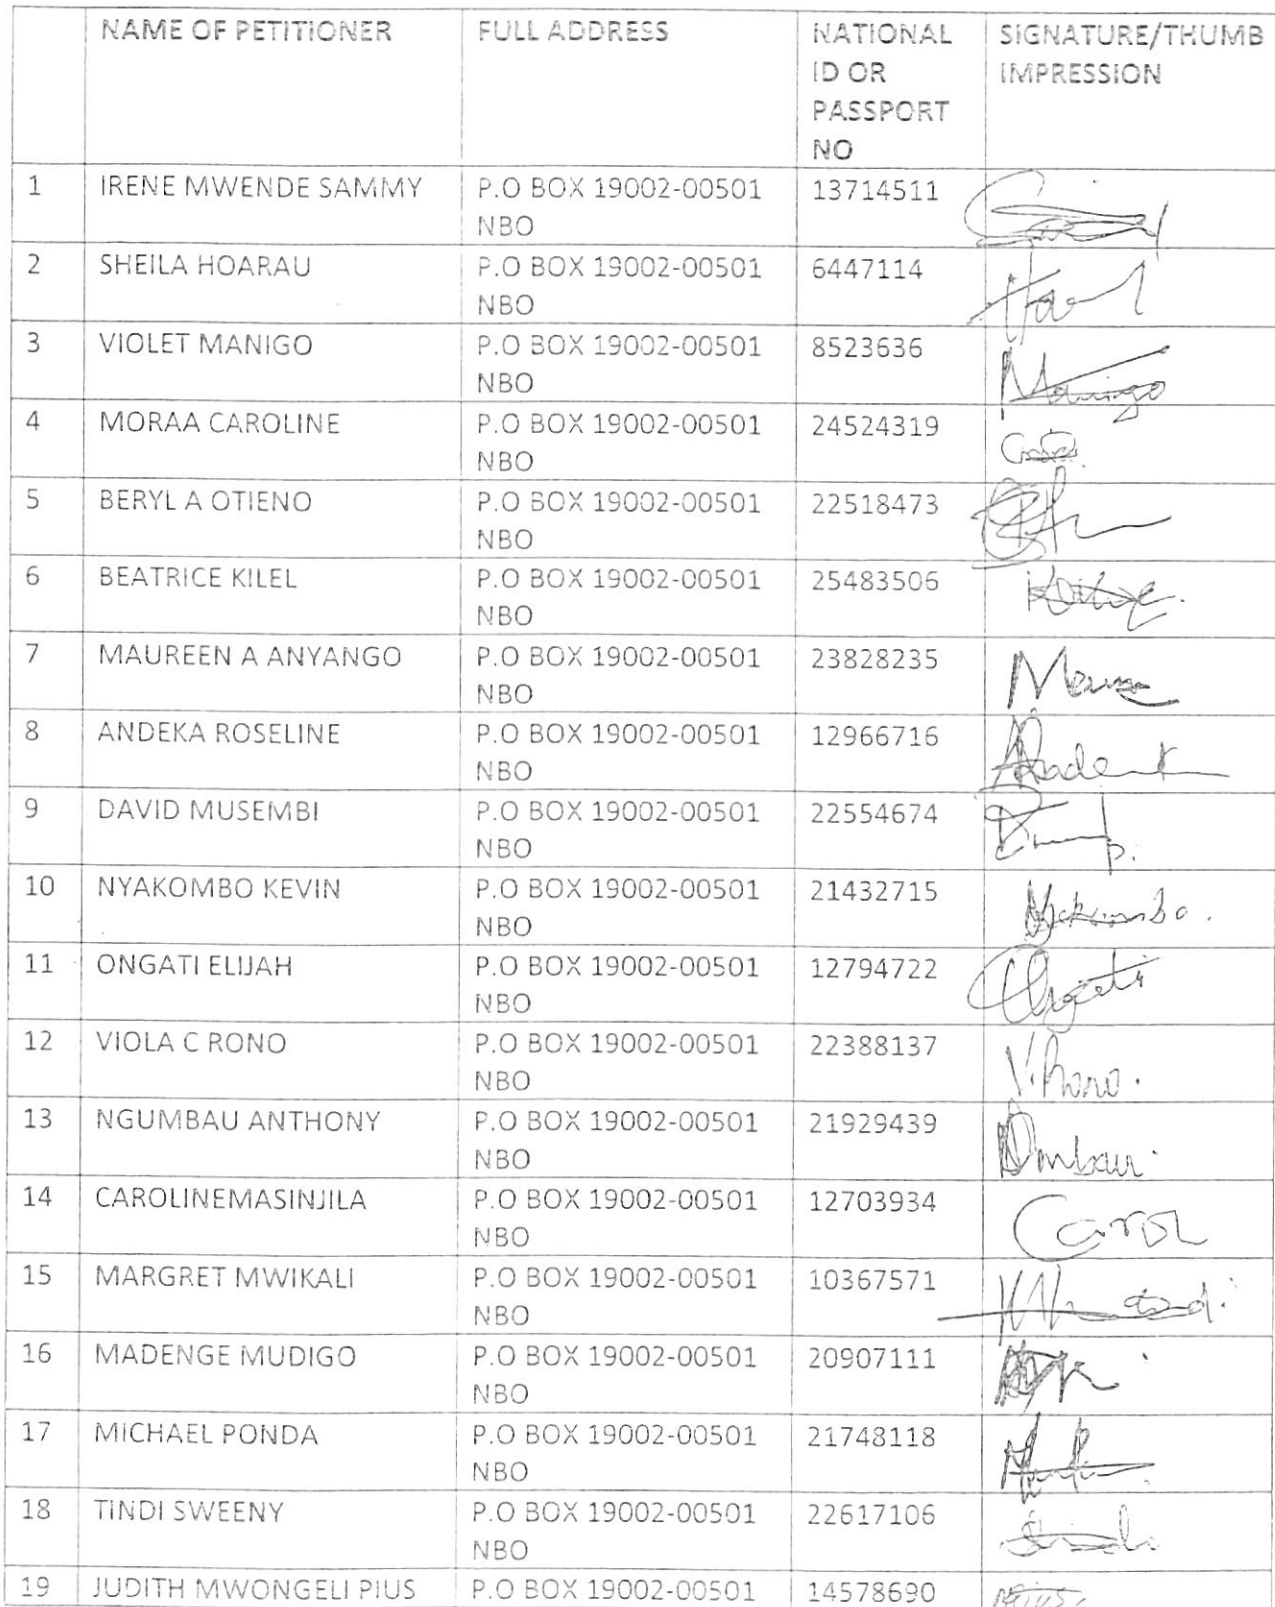 NAME OF PETITIONER FULL ADDRESS NATIONAL SIGNATURE/THUMB
ID OR IMPRESSION
PASSPORT
NO
1 IRENE MWENDE SAMMY P.O BOX 19002-00501 13714511
NBO
2 SHEILA HOARAU P.O BOX 19002-00501 6447114
NBO
3 VIOLET MANIGO P.O BOX 19002-00501 8523636
NBO Manigo
4 MORAA CAROLINE P.O BOX 19002-00501 24524319
NBO
5 BERYL A OTIENO P.O BOX 19002-00501 22518473
NBO
6 BEATRICE KILEL P.O BOX 19002-00501 25483506
NBO
7 MAUREEN A ANYANGO P.O BOX 19002-00501 23828235
NBO
8 ANDEKA ROSELINE P.O BOX 19002-00501 12966716
NBO
9 DAVID MUSEMBI P.O BOX 19002-00501 22554674
NBO
10 NYAKOMBO KEVIN P.O BOX 19002-00501 21432715
NBO
11 ONGATI ELIJAH P.O BOX 19002-00501 12794722
NBO
12 VIOLA C RONO P.O BOX 19002-00501 22388137
NBO V. Rono.
13 NGUMBAU ANTHONY P.O BOX 19002-00501 21929439
NBO
14 CAROLINEMASINJILA P.O BOX 19002-00501 12703934
NBO Carol
15 MARGRET MWIKALI P.O BOX 19002-00501 10367571
NBO
16 MADENGE MUDIGO P.O BOX 19002-00501 20907111
NBO
17 MICHAEL PONDA P.O BOX 19002-00501 21748118
NBO
18 TINDI SWEENY P.O BOX 19002-00501 22617106
NBO
19 JUDITH MWONGELI PIUS P.O BOX 19002-00501 14578690